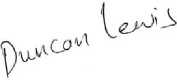 Duncan Lewis